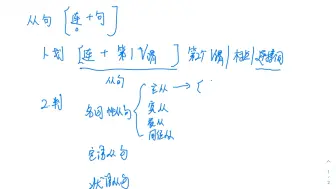 从句 [连 + 句]
1. 划 [连 + 第1个V谓] 第2个V谓 / 标点 / 连接词
从句
2. 判
名词性从句 { 主从 → {
宾从
表从
同位从
定语从句
状语从句